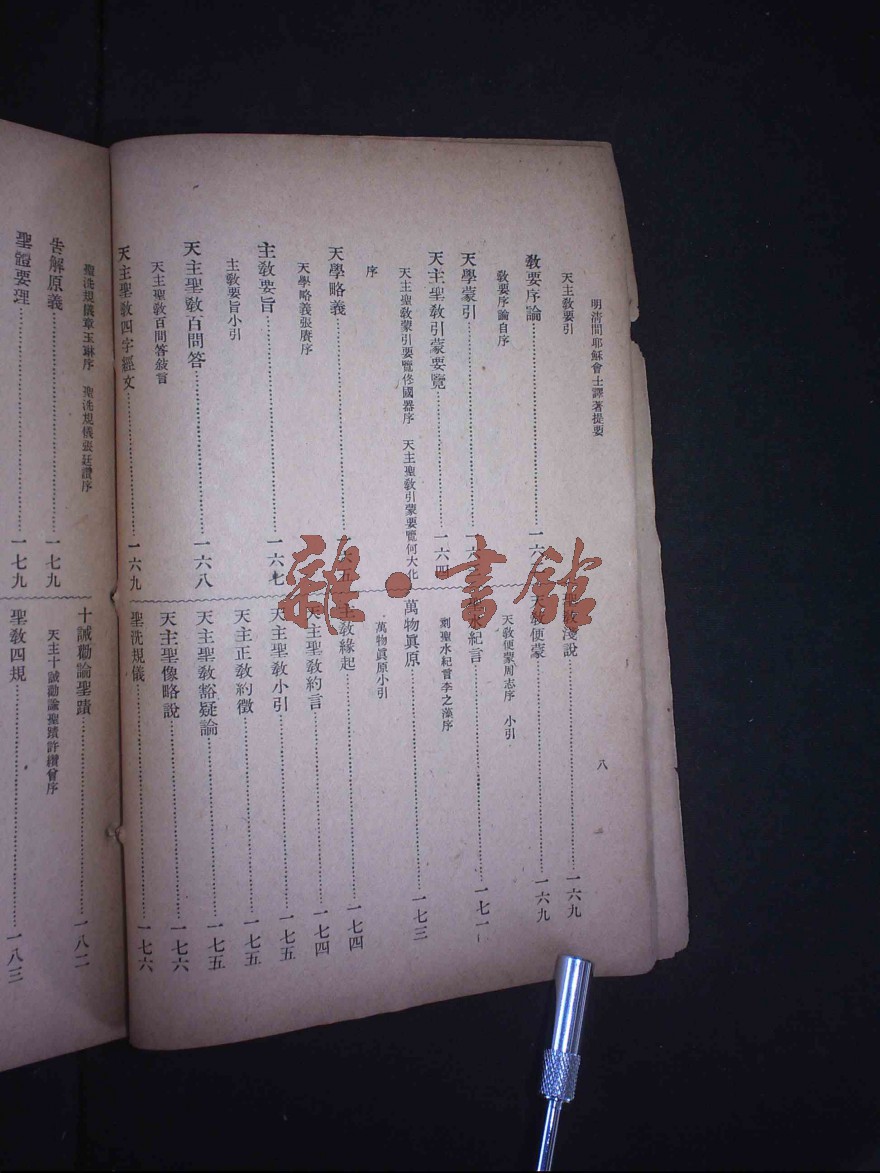 明清間耶穌會士譯著提要
八
天主教要引
教要序論……一六
教要序論自序
天學蒙引……一六
天主聖教引蒙要覽……一六四
天主聖教蒙引要覽佟國器序 天主聖教引蒙要覽何大化
序
天學略義……一六五
天學略義張賡序
主教要旨……一六七
主教要旨小引
天主聖教百問答……一六八
天主聖教百問答敍言
天主聖教四字經文……一六九
淺說……一六九
天教便蒙……一六九
天教便蒙周志序 小引
聖水紀言……一七一
刻聖水紀言李之藻序
萬物眞原……一七三
萬物眞原小引
主教緣起……一七四
天主聖教約言……一七四
天主聖教小引……一七五
天主正教約徵……一七五
天主聖教豁疑論……一七五
天主聖像略說……一七六
聖洗規儀……一七六
聖洗規儀章玉琳序 聖洗規儀張廷讚序
告解原義……一七九
聖體要理……一七九
十誡勸論聖蹟……一八二
天主十誡勸論聖蹟許纘曾序
聖教四規……一八三
雜·書館